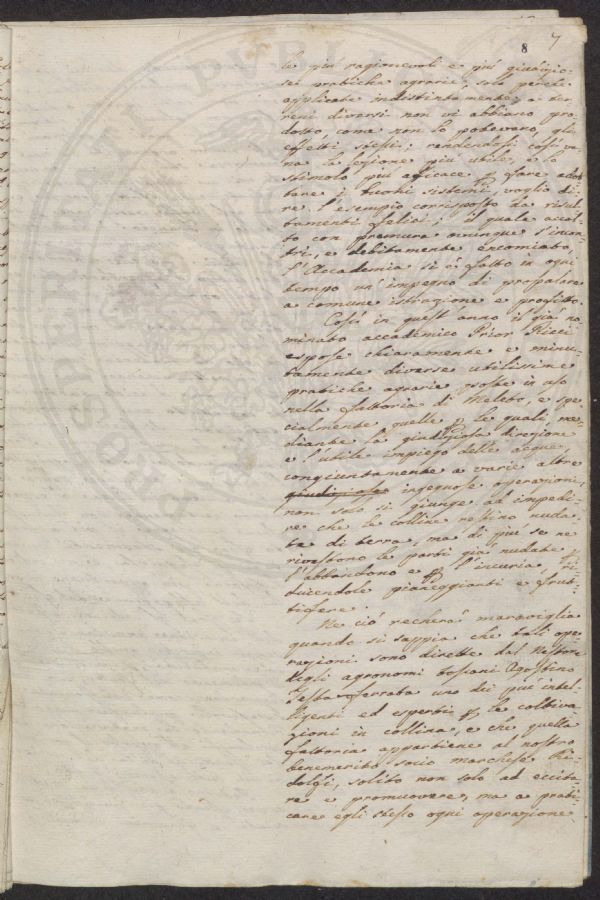 8 7
le più ragionevoli e più giudizio-
se pratiche agrarie, solo perchè
applicate indistintamente a ter-
reni diversi non vi abbiano pro-
dotto, come non lo potevano, gli
effetti stessi; rendendosi così va-
na la lezione più utile, e lo
stimolo più efficace p fare adot
tare i buoni sistemi, voglio di-
re l'esempio corrisposto da risul-
tamenti felici; il quale accol-
to con premura ovunque s'incon-
tri, e debitamente encomiato,
l'Accademia si è fatto in ogni
tempo un impegno di propalare
a comune istruzione e profitto.
Così in quest'anno il già no
minato accademico Prior Ricci
espose chiaramente e minu-
tamente diverse utilissime
pratiche agrarie poste in uso
nella fattoria di Meleto, e spe-
cialmente quelle p le quali, me-
diante la giudiziosa direzione
e l'utile impiego delle acque,
congiuntamente a varie altre
giudiziose ingegnose operazioni,
non solo si giunge ad impedi-
re che le colline restino nuda-
te di terra, ma di più se ne
rivestono le parti già nudate p
l'abbandono e p l'incuria, ri-
ducendole pianeggianti e frut-
tifere.
Ne ciò recherà maraviglia
quando si sappia che tali ope-
razioni sono dirette dal Nestore
degli agronomi toscani Agostino
Testaferrata uno dei più intel-
ligenti ed esperti p le coltiva
zioni in collina, e che quella
fattoria appartiene al nostro
benemerito socio marchese Ri-
dolfi, solito non solo ad eccita-
re e promuovere, ma a prati-
care egli stesso ogni operazione
PROSPERITATI PVBLI